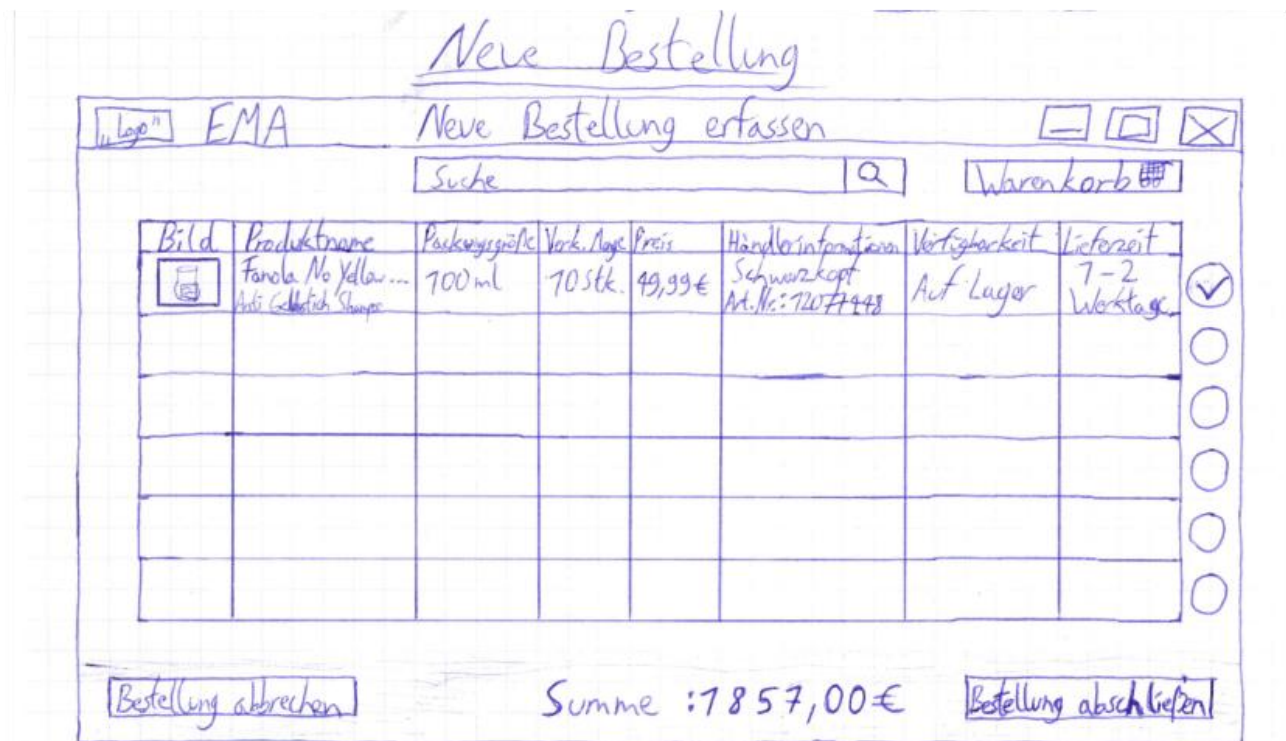 Neue Bestellung
"Logo" EMA Neue Bestellung erfassen
Suche Warenkorb
Bild Produktname Packungsgröße Verk. Menge Preis Händlerinformationen Verfügbarkeit Lieferzeit
Fanola No Yellow... 100ml 10 Stk. 49,99€ Schwarzkopf Auf Lager 1-2
Anti Gelbstich Shampo Art.Nr.: Werktage
Bestellung abbrechen Summe :1857,00€ Bestellung abschließen